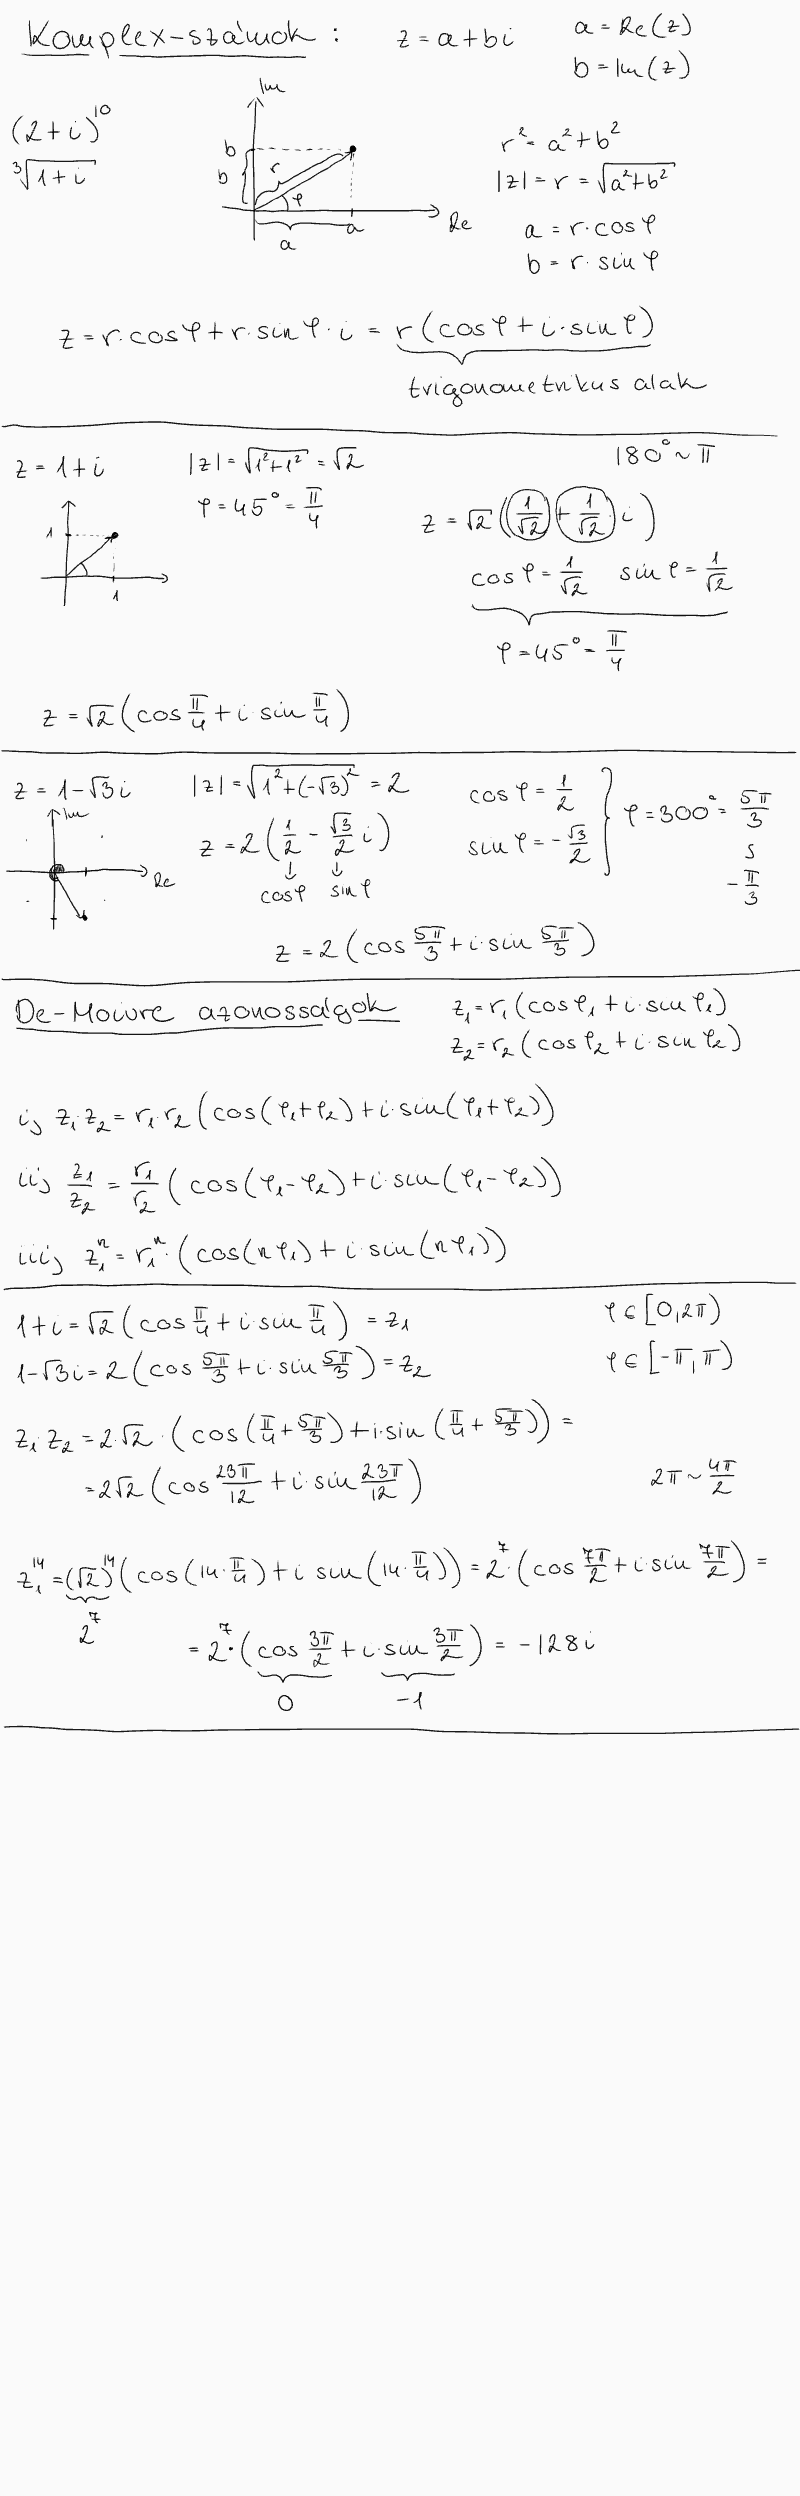 Komplex-számok : z = a + bi a = Re(z)
b = Im(z)
(2+i)^10
∛(1+i)
Im
b
b
r
φ
a
a
Re
r² = a² + b²
|z| = r = √(a²+b²)
a = r·cosφ
b = r·sinφ
z = r·cosφ + r·sinφ·i = r(cosφ + i·sinφ)
trigonometrikus alak
z = 1+i |z| = √(1²+1²) = √2 180° ~ π
φ = 45° = π/4
1
1
z = √2 (1/√2 + 1/√2 · i)
cosφ = 1/√2 sinφ = 1/√2
φ = 45° = π/4
z = √2 (cos π/4 + i·sin π/4)
z = 1-√3i |z| = √(1²+(-√3)²) = 2 cosφ = 1/2
sinφ = -√3/2
} φ = 300° = 5π/3
s
-π/3
Im
Re
z = 2 (1/2 - √3/2 i)
↓ ↓
cosφ sinφ
z = 2 (cos 5π/3 + i·sin 5π/3)
De-Moivre azonosságok z₁ = r₁(cosφ₁ + i·sinφ₁)
z₂ = r₂(cosφ₂ + i·sinφ₂)
i, z₁·z₂ = r₁·r₂ (cos(φ₁+φ₂) + i·sin(φ₁+φ₂))
ii, z₁/z₂ = r₁/r₂ (cos(φ₁-φ₂) + i·sin(φ₁-φ₂))
iii, z₁ⁿ = r₁ⁿ·(cos(nφ₁) + i·sin(nφ₁))
1+i = √2 (cos π/4 + i·sin π/4) = z₁ φ ∈ [0,2π)
1-√3i = 2 (cos 5π/3 + i·sin 5π/3) = z₂ φ ∈ [-π,π)
z₁·z₂ = 2·√2·(cos(π/4 + 5π/3) + i·sin(π/4 + 5π/3)) =
= 2√2 (cos 23π/12 + i·sin 23π/12) 2π ~ 4π/2
z₁^14 = (√2)^14 (cos(14·π/4) + i sin(14·π/4)) = 2^7·(cos 7π/2 + i·sin 7π/2) =
2^7
= 2^7·(cos 3π/2 + i·sin 3π/2) = -128i
0 -1